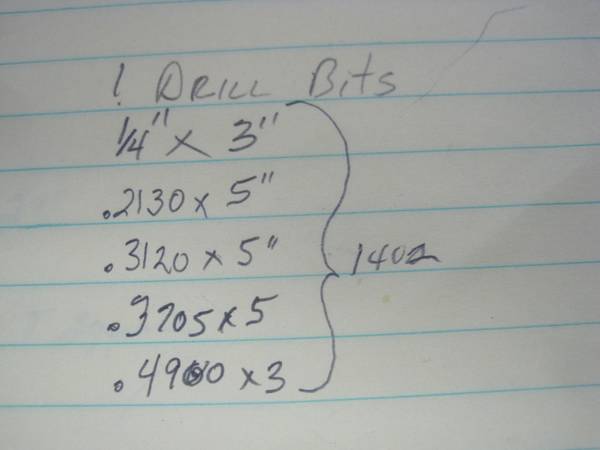 ! DRILL BITS
1/4" x 3"
.2130 x 5"
.3120 x 5"
.3705 x 5
.4900 x 3
14oz